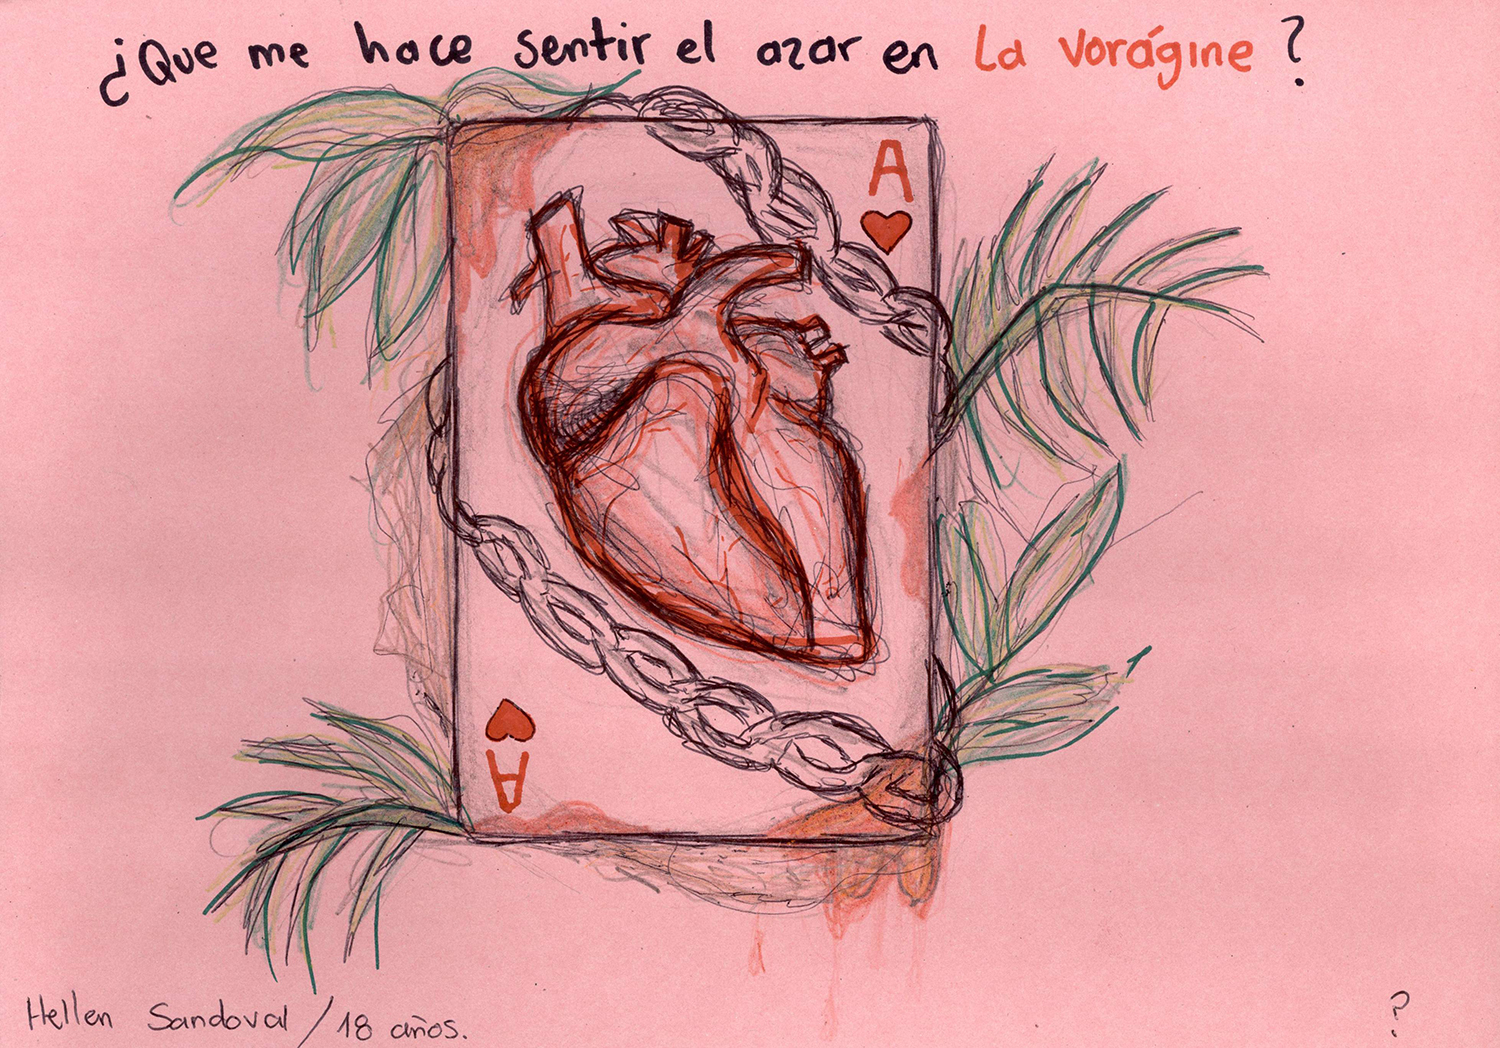 ¿Que me hace sentir el azar en La Vorágine?
A
A
Hellen Sandoval / 18 años.
?